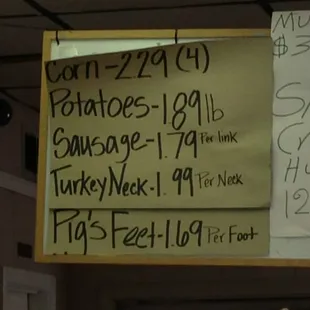 Corn-229 (4)
Potatoes-1.89 lb
Sausage-1.79 Per link
Turkey Neck-1.99 Per Neck
Pig's Feet-1.69 Per Foot